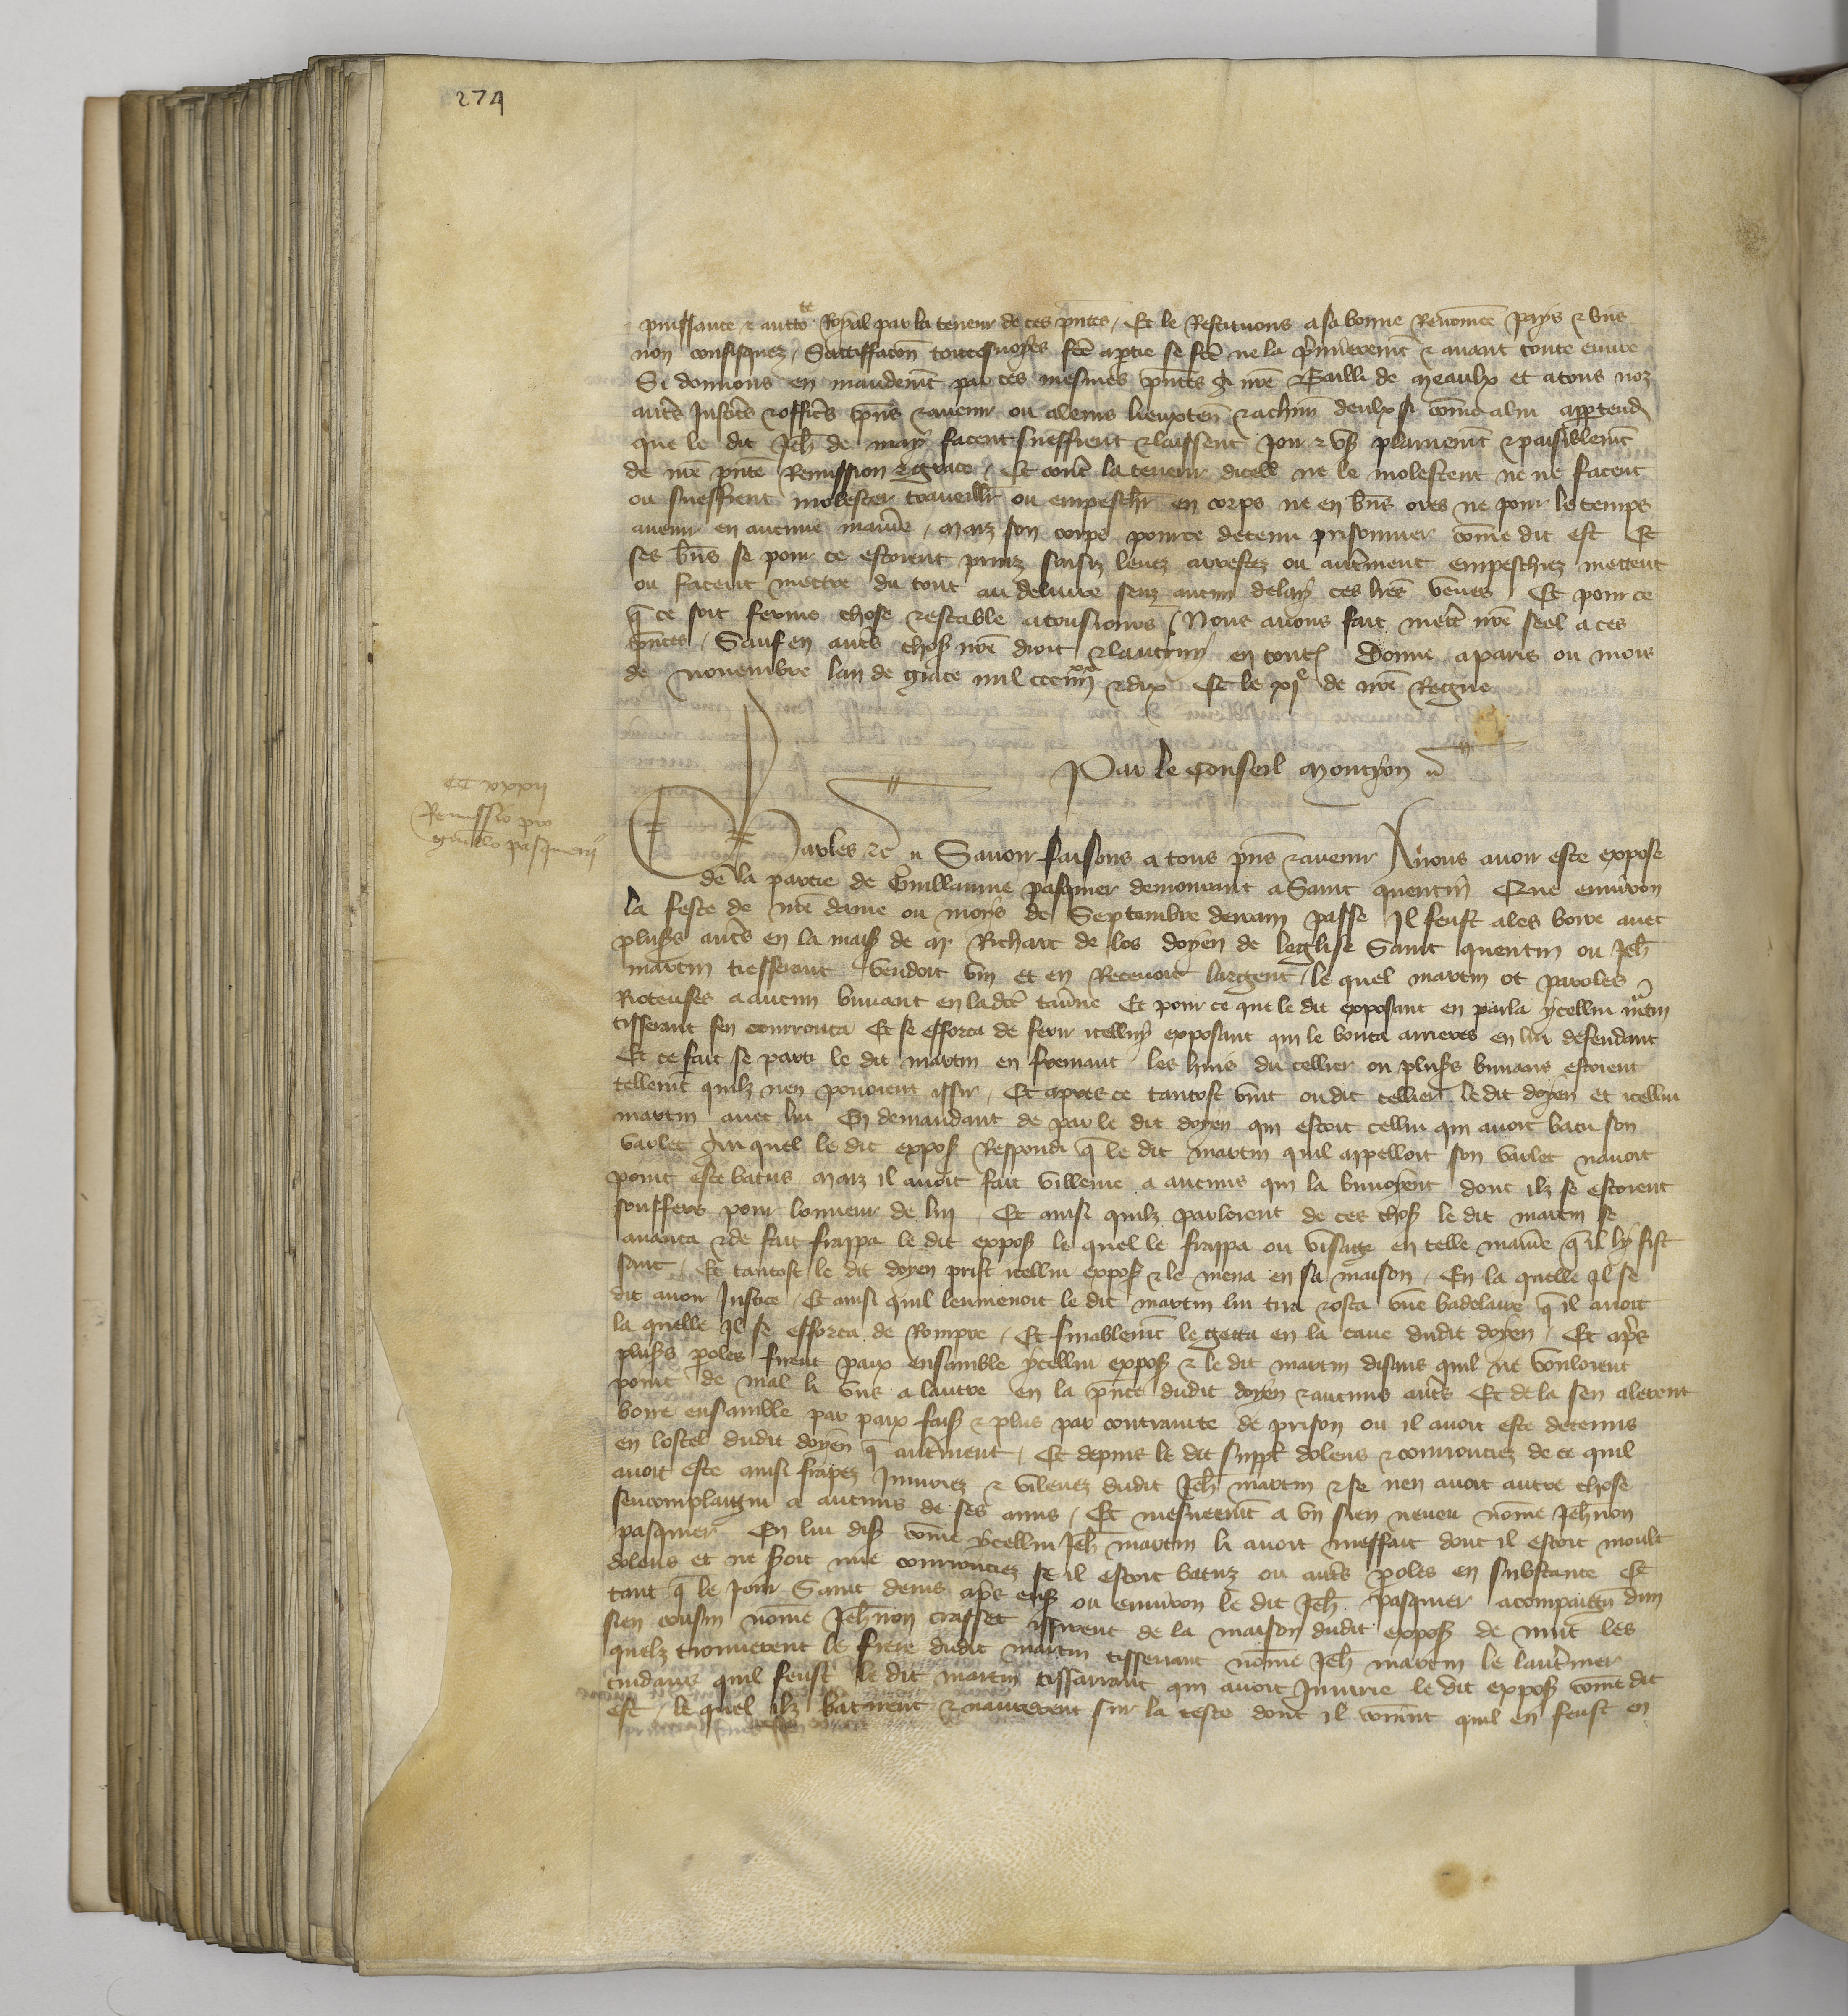 274
puissance & auctorite Royal par la teneur de ces pntes / Et le Restituons a sa bonne Renomee pays & bns
non confisquez / Satiffacon toutesvoyes fce a ptie se fce ne la premierement & avant toute euvre
Si donnons en mandemt par ces mesmes pntes a nre Bailli de Meaulx et a tous noz
autres Justices & officrs pns & avenir ou a leurs lieuxten & a chun deulx si come a lui apptendr
que le dit Jeh de may facent sueffrent & laissent Joir & user plainemt & paisiblemt
de nre pnte Remission & grace / Et contre la teneur dicelle ne le molestent ne ne facent
ou sueffrent molester traveillr ou empeschr en corps ne en bns ores ne pour le temps
avenir en aucune maniere / Maiz son corps pour ce detenu prisonnier come dit est Et
ses bns se pour ce estoient prinz saisiz levez arrestez ou autrement empeschiez mettent
ou facent mettre du tout au delivre senz aucun delay ces lres veues Et pour ce
q ce soit ferme chose & estable a tousiours / Nous avons fait mettre nre seel a ces
pntes / Sauf en autres choses nre droit & lautruy en toutes Donne a paris ou mois
de novembre lan de grace mil ccc iiii xx & dix Et le xie de nre Regne
Par le Conseil Montyon
CC xxxii
Remissio pro
guillo pasquerii
Charles &c Savoir faisons a tous pns & avenir A nous avoir este expose
de la partie de Guillaume pasquier demourant a Saint quentin Que environ
la feste de nre dame ou moys de Septembre derrain passe Il feust ales boire avec
plus autres en la maison de M Richart de los doyen de leglise Saint quentin ou Jeh
martin tiesserant vendoit vin et en Recevoit largent / le quel martin ot paroles
Rioteuses a aucun buvant en la dce taverne Et pour ce que le dit exposant en parla ycellui mtin
tisserant sen courrouca Et se efforca de ferir icelluy exposant qui le bouta arrieres en lui defendant
Et ce fait se parti le dit martin en fremant les huis du cellier ou plus buvans estoient
tellemt quilz nen povoient issir / Et apres ce tantost vint oudit cellier le dit doyen et icellui
martin avec lui En demandant de par le dit doyen qui estoit cellui qui avoit batu son
varlet Au quel le dit expos Respondi q le dit martin quil appelloit son varlet navoit
point este batus / Maiz il avoit fait villenie a aucuns qui la buvoyent dont ilz se estoient
souffers pour lonneur de luy / Et ainsi quilz parloient de ces choses le dit martin se
avanca & de fait frappa le dit expos le quel le frappa ou visaige en telle maniere q il ly fist
sanc / Et tantost le dit doyen prist icellui expos & le mena en sa maison / En la quelle Il se
dit avoir Justice / Et ainsi quil lenmenoit le dit martin lui tira & osta une badelaire q il avoit
la quelle Il se efforca de Rompre / Et finablemt le getta en la cave dudit doyen / Et apres
plus proles firent paix ensamble ycellui expos & le dit martin disans quil ne vouloient
point de mal li uns a lautre en la pnce dudit doyen & aucuns autres Et de la sen alerent
boire ensamble par paix fais & plus par contrainte de prison ou il avoit este detenus
en lostel dudit doyen q autrement / Et depuis le dit suppl dolens & courrouciez de ce quil
avoit este ainsi frapez Iniuriez & vilenez dudit Jeh martin & se nen avoit autre chose
sen complaigni a aucuns de ses amis / Et mesmemt a un sien neveu nome Jehnon
pasquier En lui dis come ycellui Jeh martin li avoit meffait dont il estoit moult
dolens et ne seroit mie courrouciez se il estoit batuz ou autres proles en substance Et
tant q le Jour Saint denis apres ens ou environ le dit Jeh pasquier acompaign dun
sien cousin nome Jehnon crasset issirent de la maison dudit expos de nuit les
quelz trouverent le frere dudit martin tisserant nome Jeh martin le lanternier
cuidans quil feust le dit martin tissarrant qui avoit Iniurie le dit expos come dit
est / le quel ilz batirent & navrerent sur la teste dont il convint quil en feust en